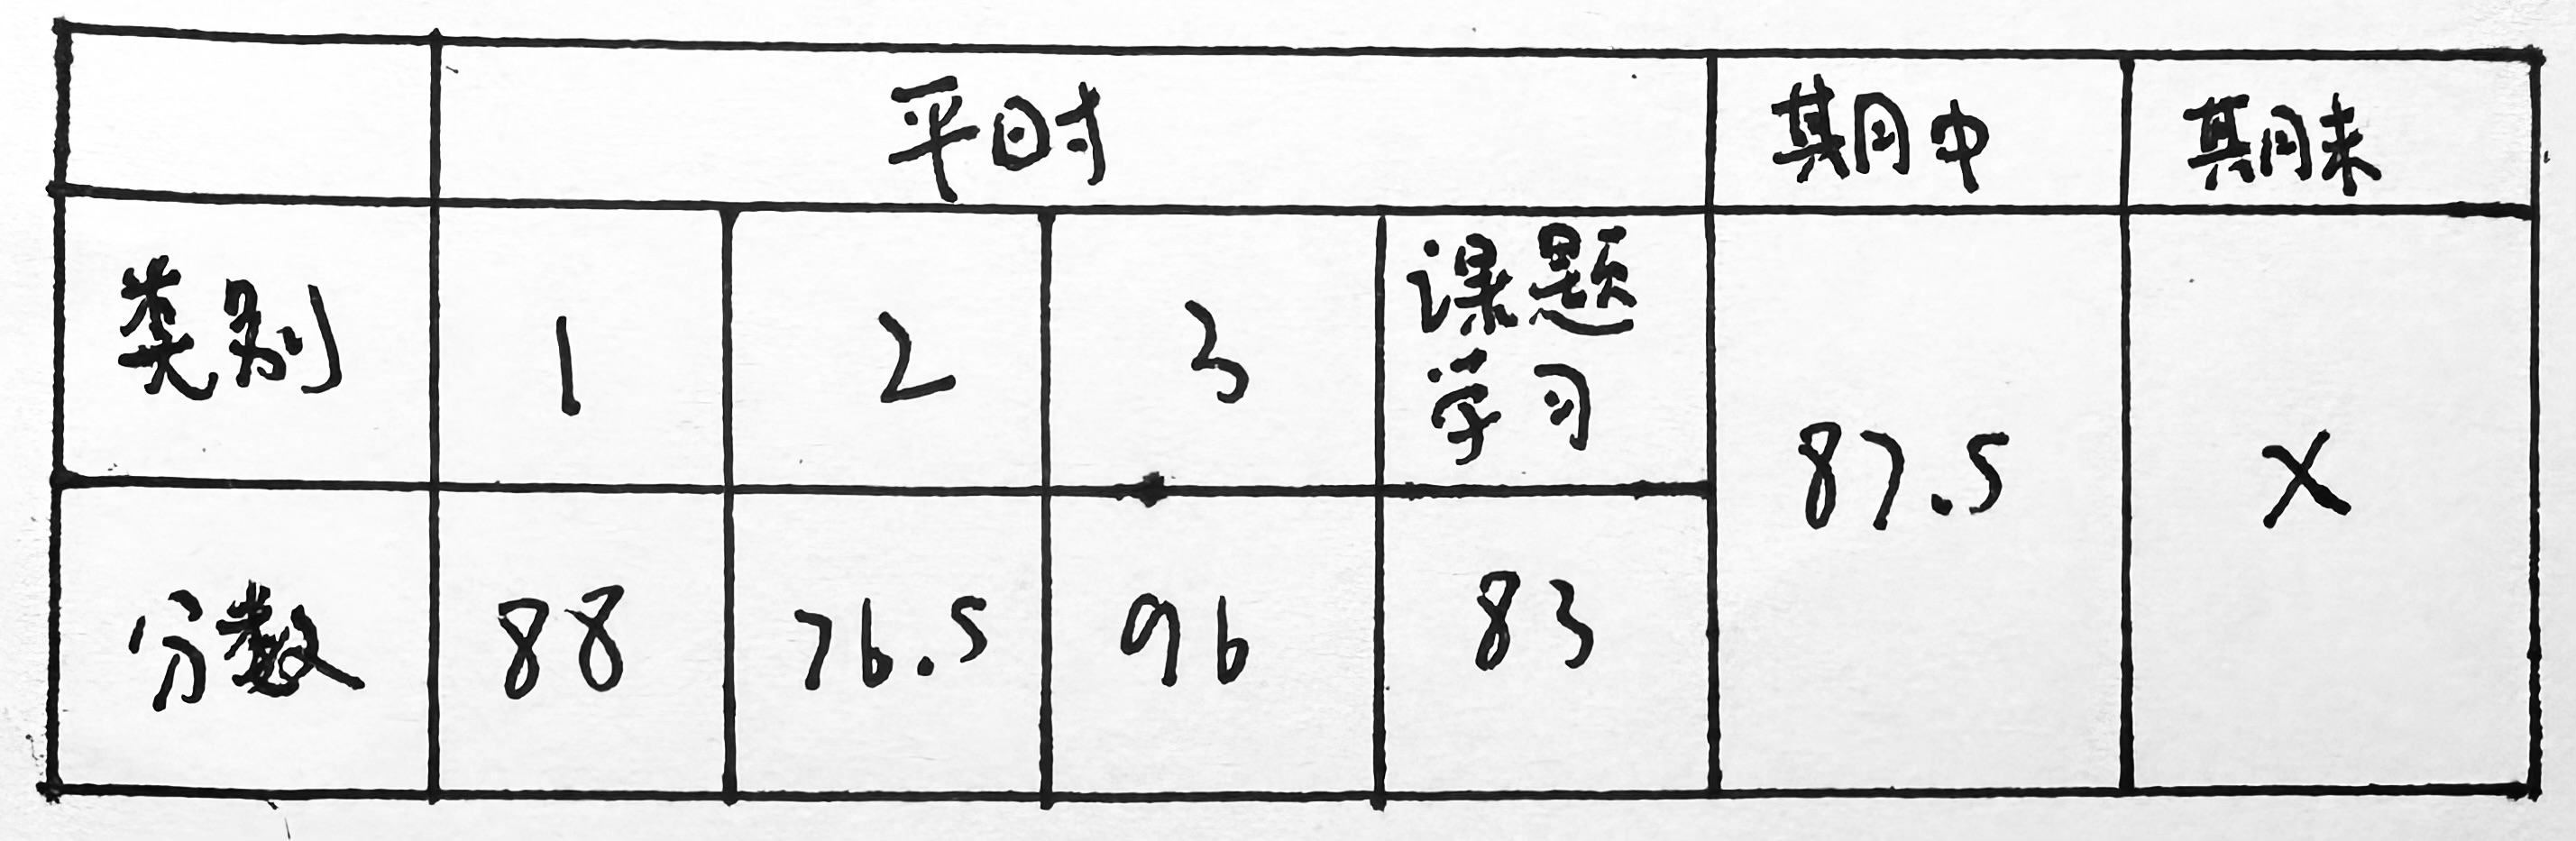 平时 期中 期末
类别 1 2 3 课题学习 87.5 X
分数 88 76.5 96 83